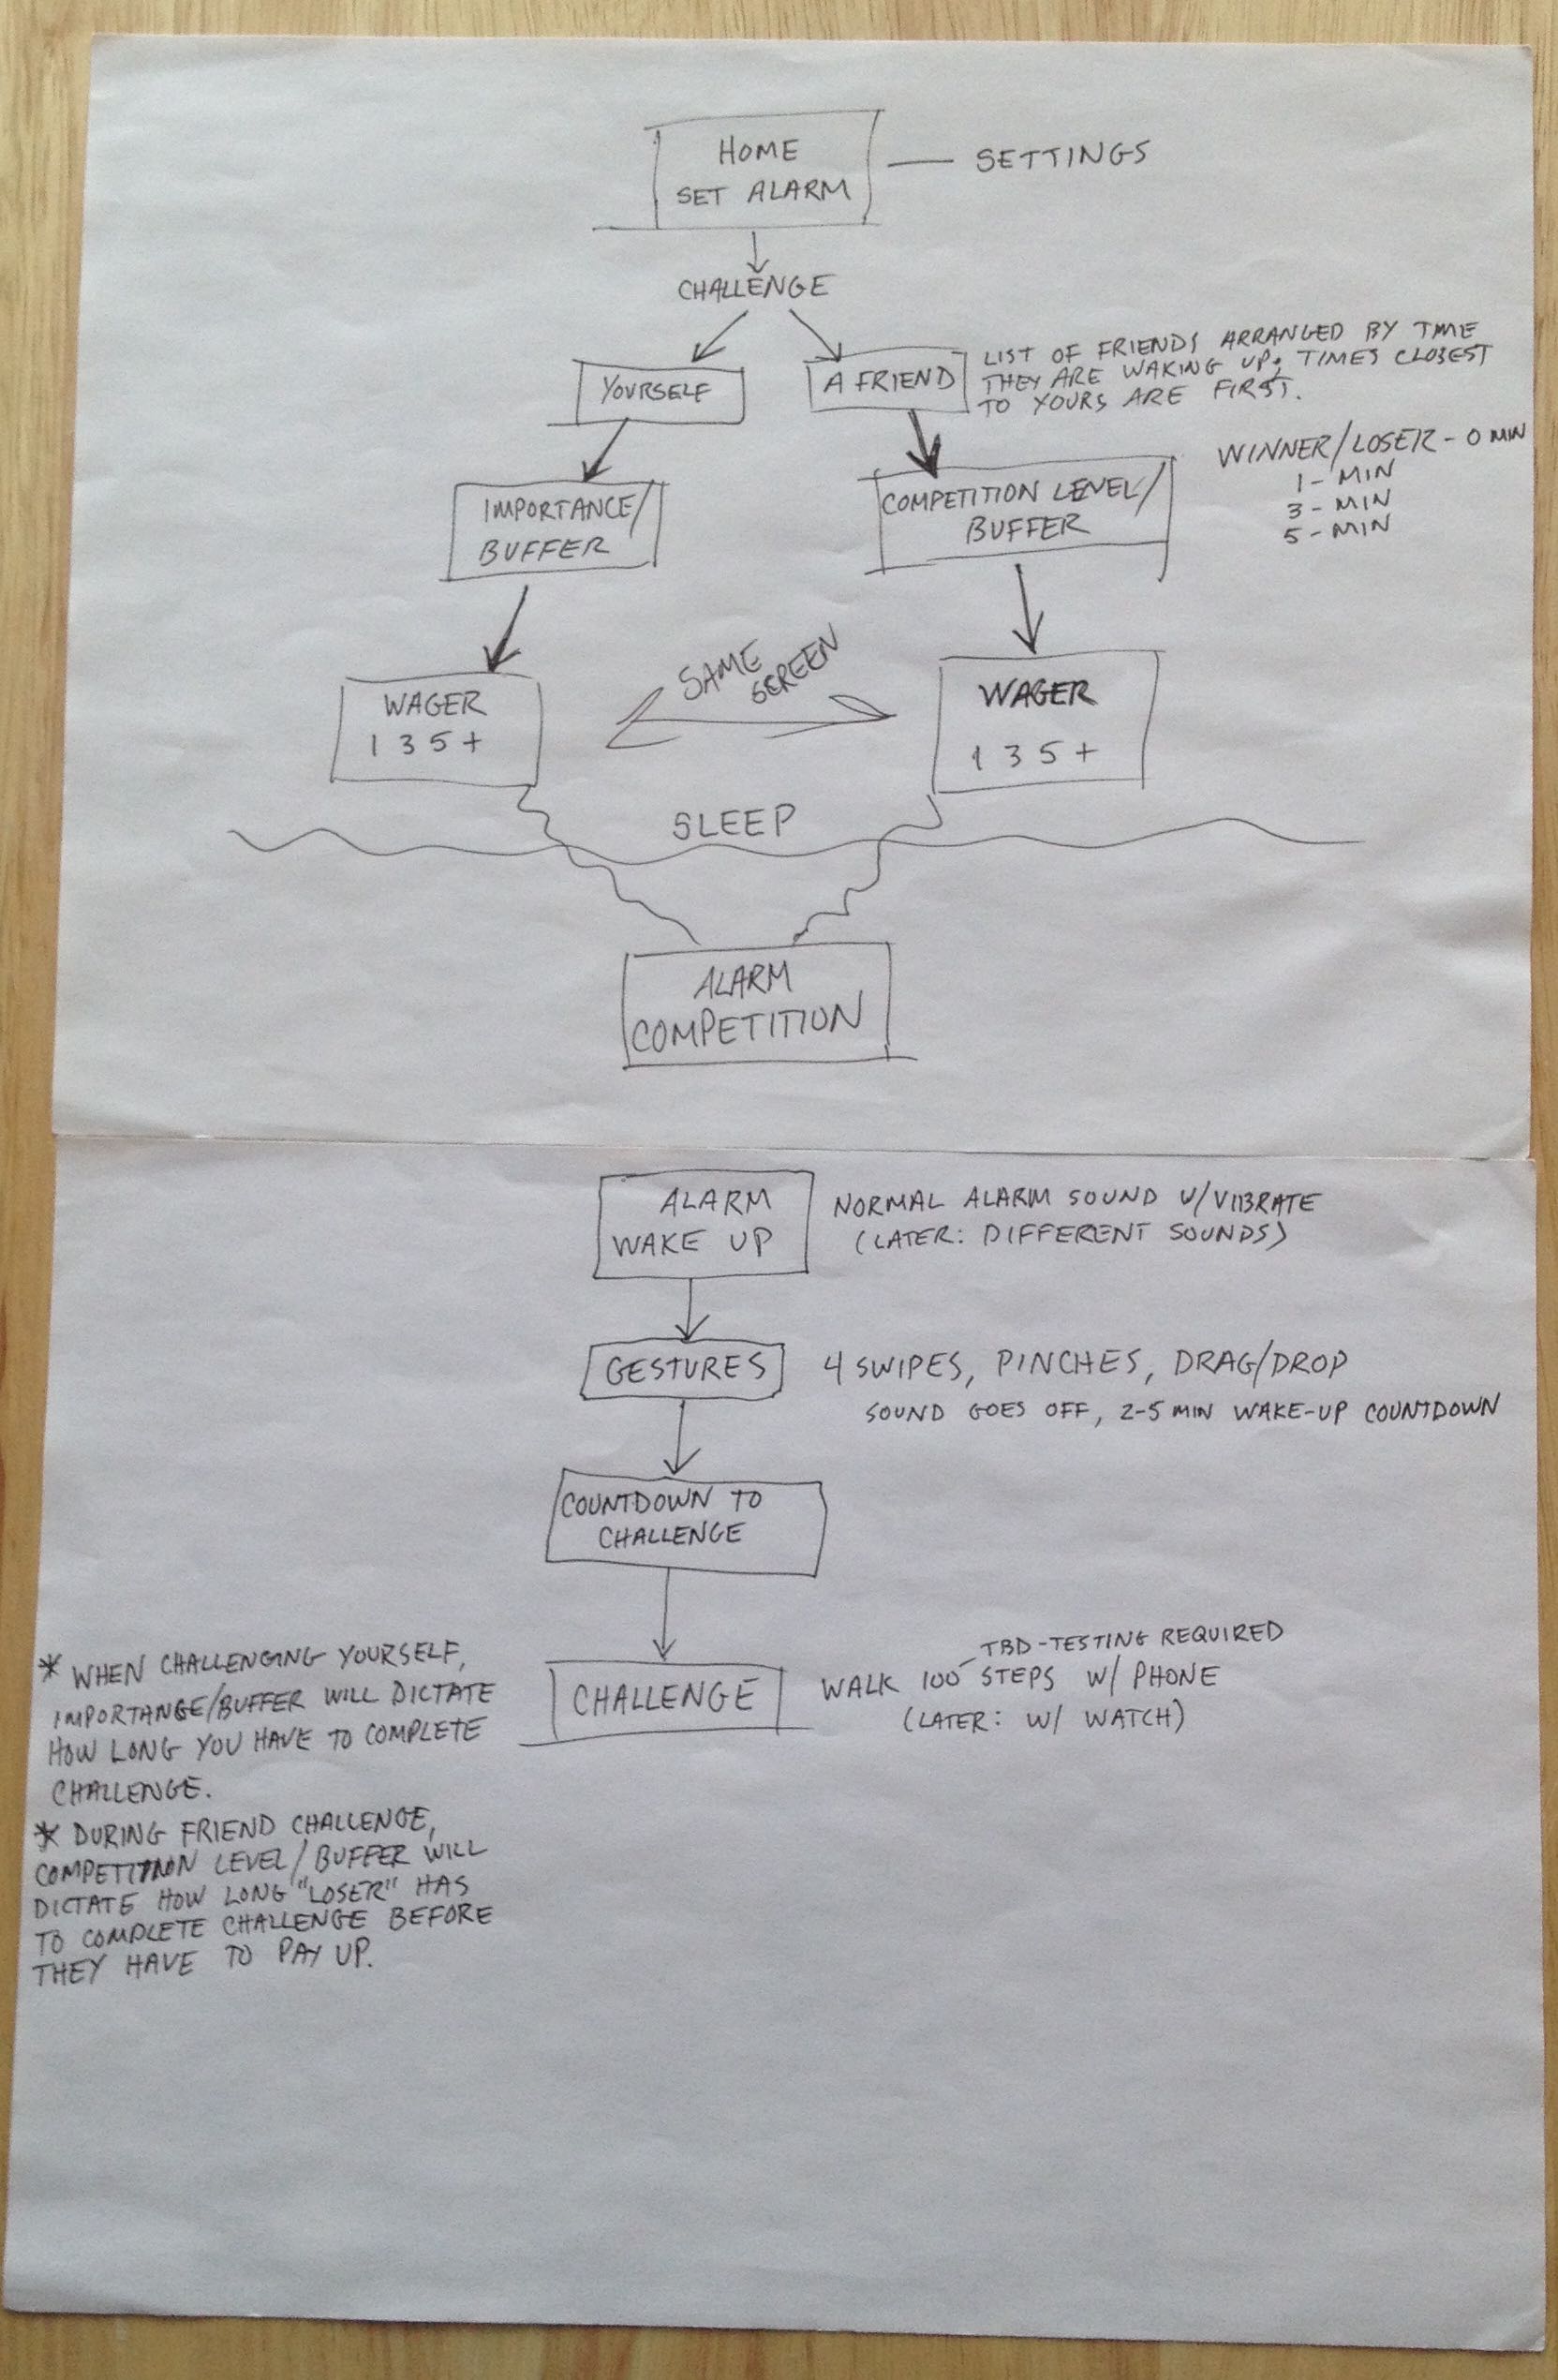 HOME
SET ALARM
SETTINGS
CHALLENGE
YOURSELF
A FRIEND
LIST OF FRIENDS ARRANGED BY TIME
THEY ARE WAKING UP; TIMES CLOSEST
TO YOURS ARE FIRST.
IMPORTANCE/
BUFFER
COMPETITION LEVEL/
BUFFER
WINNER/LOSER - 0 MIN
1 - MIN
3 - MIN
5 - MIN
WAGER
1 3 5 +
SAME
SCREEN
WAGER
1 3 5 +
SLEEP
ALARM
COMPETITION
ALARM
WAKE UP
NORMAL ALARM SOUND W/VIBRATE
(LATER: DIFFERENT SOUNDS)
GESTURES
4 SWIPES, PINCHES, DRAG/DROP
SOUND GOES OFF, 2-5 MIN WAKE-UP COUNTDOWN
COUNTDOWN TO
CHALLENGE
CHALLENGE
TBD-TESTING REQUIRED
WALK 100 STEPS W/ PHONE
(LATER: W/ WATCH)
* WHEN CHALLENGING YOURSELF,
IMPORTANCE/BUFFER WILL DICTATE
HOW LONG YOU HAVE TO COMPLETE
CHALLENGE.
* DURING FRIEND CHALLENGE,
COMPETITION LEVEL/BUFFER WILL
DICTATE HOW LONG "LOSER" HAS
TO COMPLETE CHALLENGE BEFORE
THEY HAVE TO PAY UP.